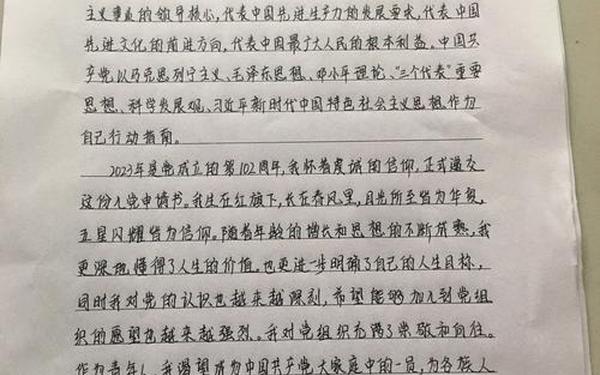 主义事业的领导核心，代表中国先进生产力的发展要求，代表中国
先进文化的前进方向，代表中国最广大人民的根本利益。中国共
产党以马克思列宁主义、毛泽东思想、邓小平理论、“三个代表”重要
思想、科学发展观、习近平新时代中国特色社会主义思想作为
自己行动指南。
2023年是党成立的第102周年，我怀着虔诚的信仰，正式递交
这份入党申请书。我生在红旗下，长在春风里，目光所至皆为华夏，
五星闪耀皆为信仰。随着年龄的增长和思想的不断成熟，我
更深地懂得了人生的价值。也更进一步明确了自己的人生目标，
同时我对党的认识也越来越深刻，希望能够加入到党组
织的愿望也越来越强烈。我对党组织充满了崇敬和向往。
作为青年人，我渴望成为中国共产党大家庭中的一员，为各族人